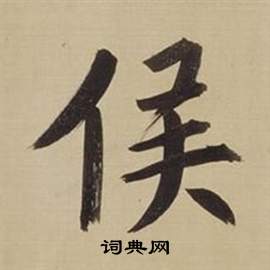 侯
词典网